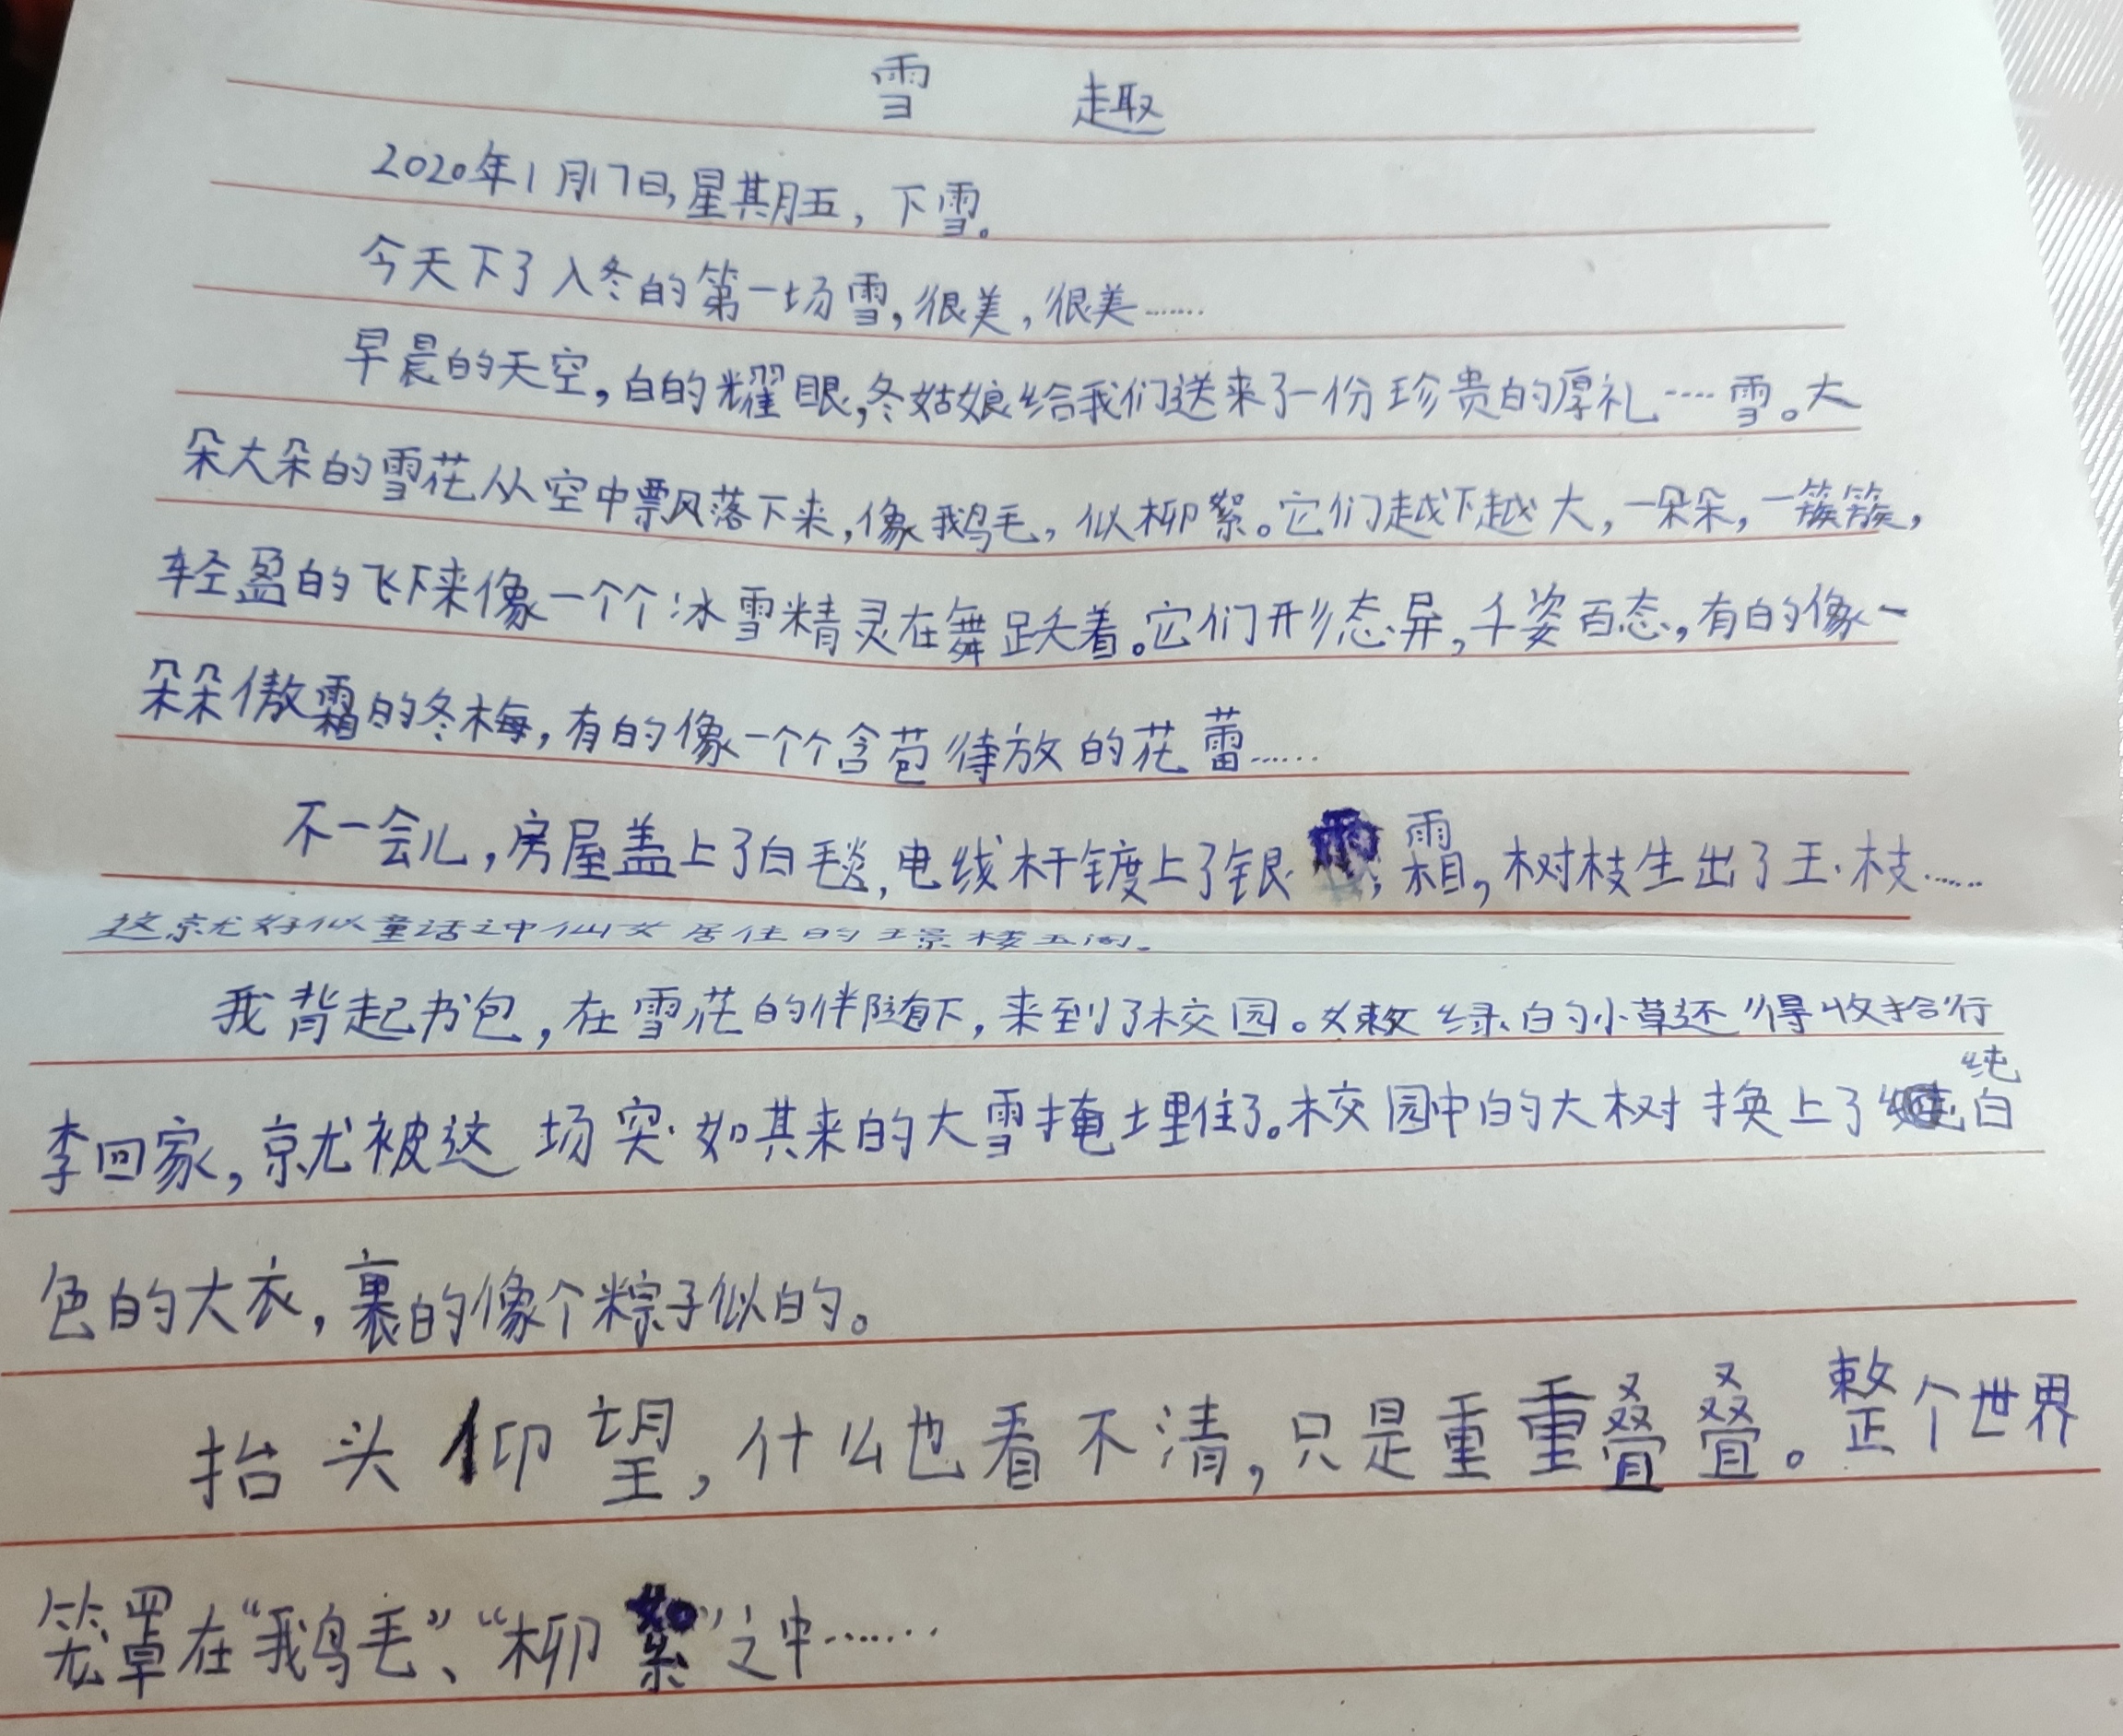 雪 趣
2020年1月17日,星期五,下雪。
今天下了入冬的第一场雪,很美,很美……
早晨的天空,白的耀眼,冬姑娘给我们送来了一份珍贵的厚礼····雪。大
朵大朵的雪花从空中飘落下来,像鹅毛,似柳絮。它们越下越大,一朵朵,一簇簇,
轻盈的飞下来像一个个冰雪精灵在舞跃着。它们形态异,千姿百态,有的像一
朵朵傲霜的冬梅,有的像一个个含苞待放的花蕾……
不一会儿,房屋盖上了白毯,电线杆镀上了银霜,树枝生出了玉枝……
这就好似童话之中仙女居住的琼楼玉阁。
我背起书包,在雪花的伴随下,来到了校园。嫩绿的小草还得收拾行
李回家,就被这场突如其来的大雪掩埋住了。校园中的大树换上了纯白
色的大衣,裹的像个粽子似的。
抬头仰望,什么也看不清,只是重重叠叠。整个世界
笼罩在“鹅毛”、“柳絮”之中……